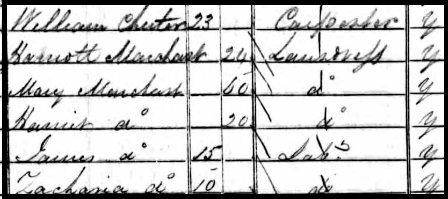 William Chester 23 Carpenter y
Harriott Marchant 24 Laundress y
Mary Marchant 60 do y
Harriet do 20 do y
James do 15 Lab. y
Zacharia do 10 do y